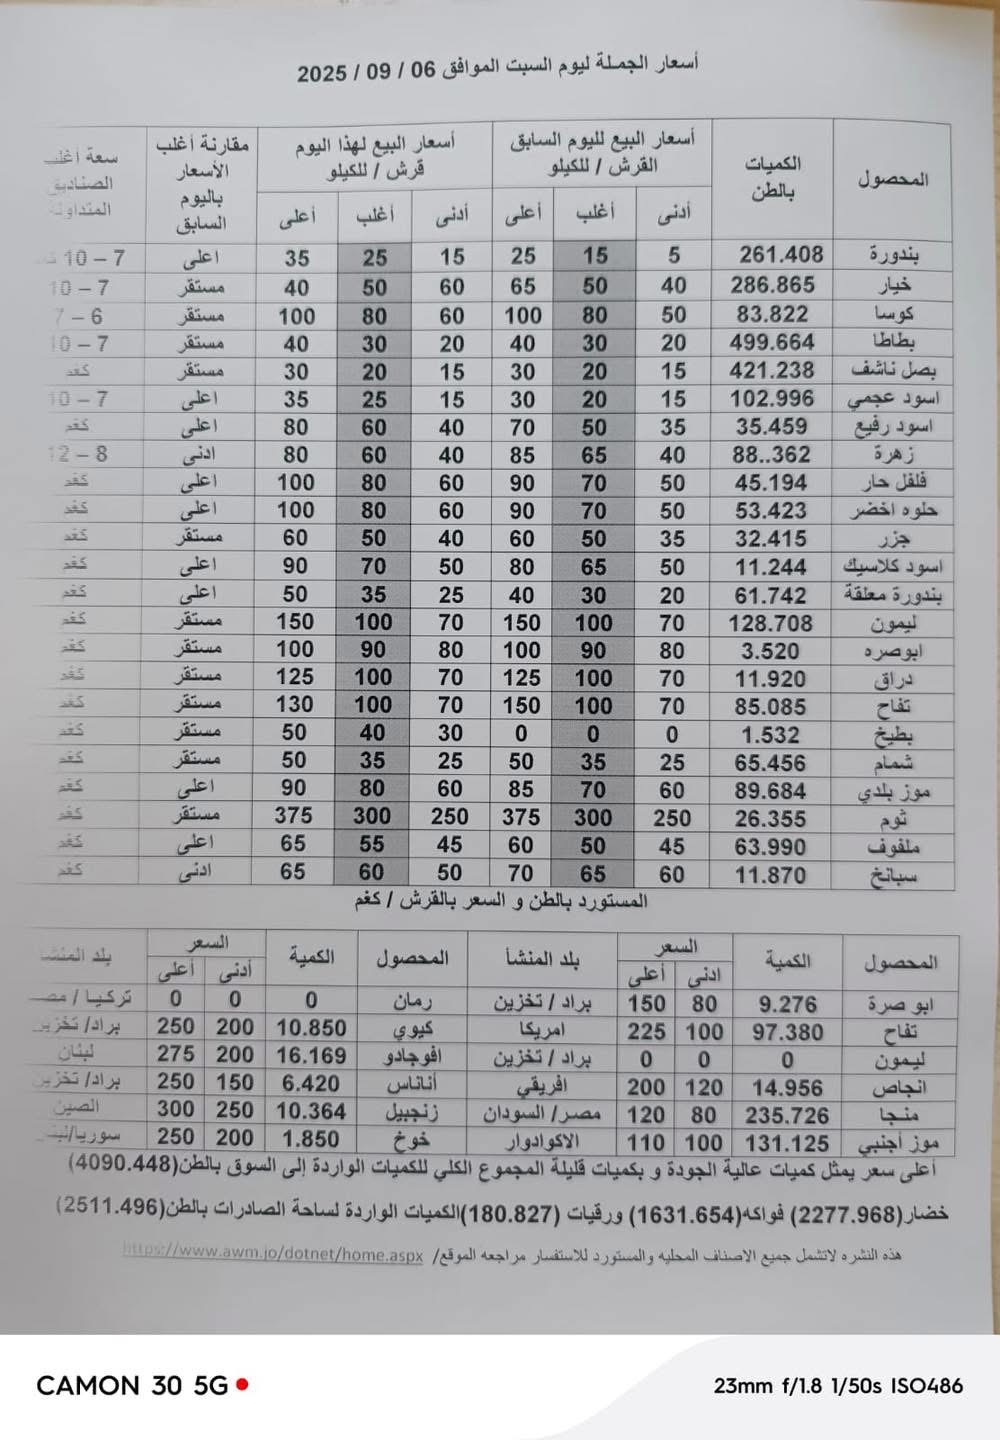 أسعار الجملة ليوم السبت الموافق 06 / 09 / 2025
المحصول الكميات بالطن أسعار البيع لليوم السابق القرش / للكيلو أسعار البيع لهذا اليوم قرش / للكيلو مقارنة أغلب الأسعار باليوم السابق سعة أغلب الصناديق
أدنى أغلب أعلى أدنى أغلب أعلى
بندورة 261.408 5 15 25 15 25 35 اعلى 7 – 10
خيار 286.865 40 50 65 60 50 40 مستقر 7 – 10
كوسا 83.822 50 80 100 60 80 100 مستقر 6 – 7
بطاطا 499.664 20 30 40 20 30 40 مستقر 7 – 10
بصل ناشف 421.238 15 20 30 15 20 30 مستقر كغم
اسود عجمي 102.996 15 20 30 15 25 35 اعلى 7 – 10
اسود رفيع 35.459 35 50 70 40 60 80 اعلى كغم
زهرة 88..362 40 65 85 40 60 80 ادنى 8 – 12
فلفل حار 45.194 50 70 90 60 80 100 اعلى كغم
حلوه اخضر 53.423 50 70 90 60 80 100 اعلى كغم
جزر 32.415 35 50 60 40 50 60 مستقر كغم
اسود كلاسيك 11.244 50 65 80 50 70 90 اعلى كغم
بندورة معلقة 61.742 20 30 40 25 35 50 اعلى كغم
ليمون 128.708 70 100 150 70 100 150 مستقر كغم
ابوصره 3.520 80 90 100 80 90 100 مستقر كغم
دراق 11.920 70 100 125 70 100 125 مستقر كغم
تفاح 85.085 70 100 150 70 100 130 مستقر كغم
بطيخ 1.532 0 0 0 30 40 50 مستقر كغم
شمام 65.456 25 35 50 25 35 50 مستقر كغم
موز بلدي 89.684 60 70 85 60 80 90 اعلى كغم
ثوم 26.355 250 300 375 250 300 375 مستقر كغم
ملفوف 63.990 45 50 60 45 55 65 اعلى كغم
سبانخ 11.870 60 65 70 50 60 65 ادنى كغم
المستورد بالطن و السعر بالقرش / كغم
المحصول الكمية السعر بلد المنشأ المحصول الكمية السعر بلد المنشأ
ادنى أعلى أدنى أعلى
ابو صرة 9.276 80 150 براد / تخزين رمان 0 0 0 تركيا /
تفاح 97.380 100 225 امريكا كيوي 10.850 200 250 براد/ تخزين
ليمون 0 0 0 براد / تخزين افوجادو 16.169 200 275 لبنان
انجاص 14.956 120 200 افريقي أناناس 6.420 150 250 براد/ تخزين
منجا 235.726 80 120 مصر/ السودان زنجبيل 10.364 250 300 الصين
موز أجنبي 131.125 100 110 الاكوادوار خوخ 1.850 200 250 سوريا/
أعلى سعر يمثل كميات عالية الجودة و بكميات قليلة المجموع الكلي للكميات الواردة إلى السوق بالطن(4090.448)
خضار(2277.968) فواكه(1631.654) ورقيات (180.827)الكميات الواردة لساحة الصادرات بالطن(2511.496)
هذه النشره لاتشمل جميع الاصناف المحليه والمستورد للاستفسار مراجعه الموقع/ https://www.awm.jo/dotnet/home.aspx
CAMON 30 5G 23mm f/1.8 1/50s ISO486